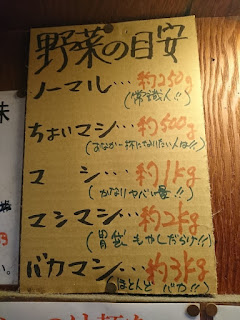 野菜の目安
ノーマル…約250g
(常識人!!)
ちょいマシ…約500g
(おなか一杯になりたい人は!!)
マシ…約1kg
(かなりヤバい量!!)
マシマシ…約2kg
(胃袋もやしだらけ!!)
バカマシ…約3kg
(ほとんどバカ!!)
味